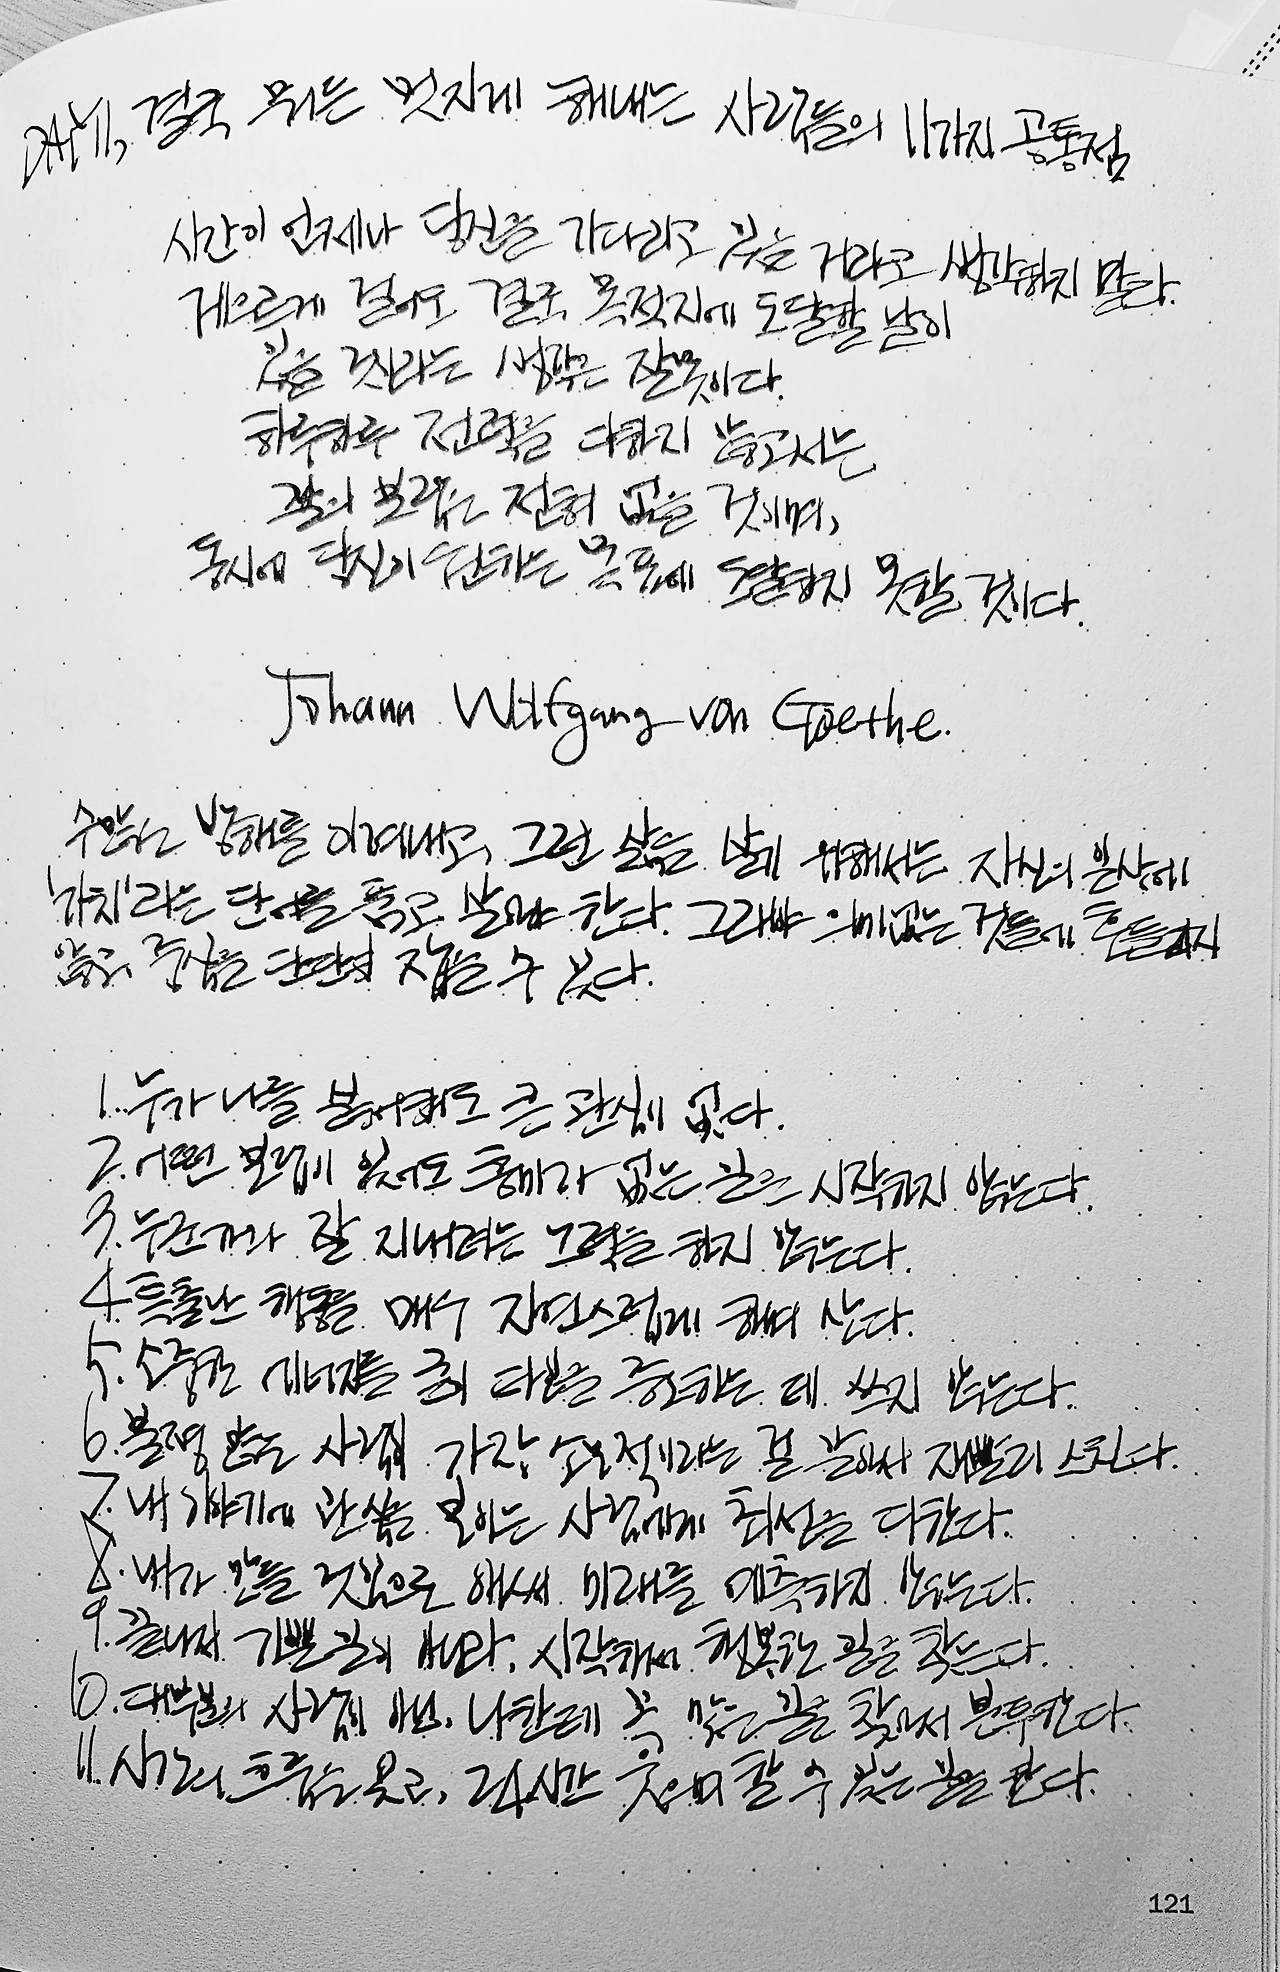 DAY11, 결국 뭐든 멋지게 해내는 사람들의 11가지 공통점
시간이 언제나 당신을 기다리고 있는 거라고 생각하지 말라.
게으르게 걸어도 결국 목적지에 도달할 날이
있을 것이라는 생각은 잘못이다.
하루하루 전력을 다하지 않고서는
그날의 보람은 전혀 없을 것이며,
동시에 당신이 원하는 목표에 도달하지 못할 것이다.
Johann Wolfgang von Goethe.
수많은 방해를 이겨내고, 그런 삶을 살기 위해서는 자신의 일상에
'가치'라는 단어를 품고 살아야 한다. 그래야 의미없는 것들에 흔들리지
않고 중심을 단단히 잡을 수 있다.
1. 누가 나를 싫어해도 큰 관심이 없다.
2. 어떤 보람이 있어도 흥미가 없는 일은 시작하지 않는다.
3. 누군가와 잘 지내려는 노력을 하지 않는다.
4. 특출난 행동을 매우 자연스럽게 하며 산다.
5. 소중한 에너지를 굳이 타인을 증오하는 데 쓰지 않는다.
6. 불평 많은 사람이 가장 소모적이라는 걸 알아서 재빨리 스친다.
7. 내 이야기에 관심을 보이는 사람에게 최선을 다한다.
8. 내가 만들 것임으로 애써 미래를 예측하지 않는다.
9. 끝나서 기쁜 일이 아니라, 시작해서 행복한 일을 찾는다.
10. 대부분의 사람이 아닌, 나한테 꼭 맞는 일을 찾아서 분투한다.
11. 시간의 흐름을 잊고, 24시간 웃으며 할 수 있는 일을 한다.
121